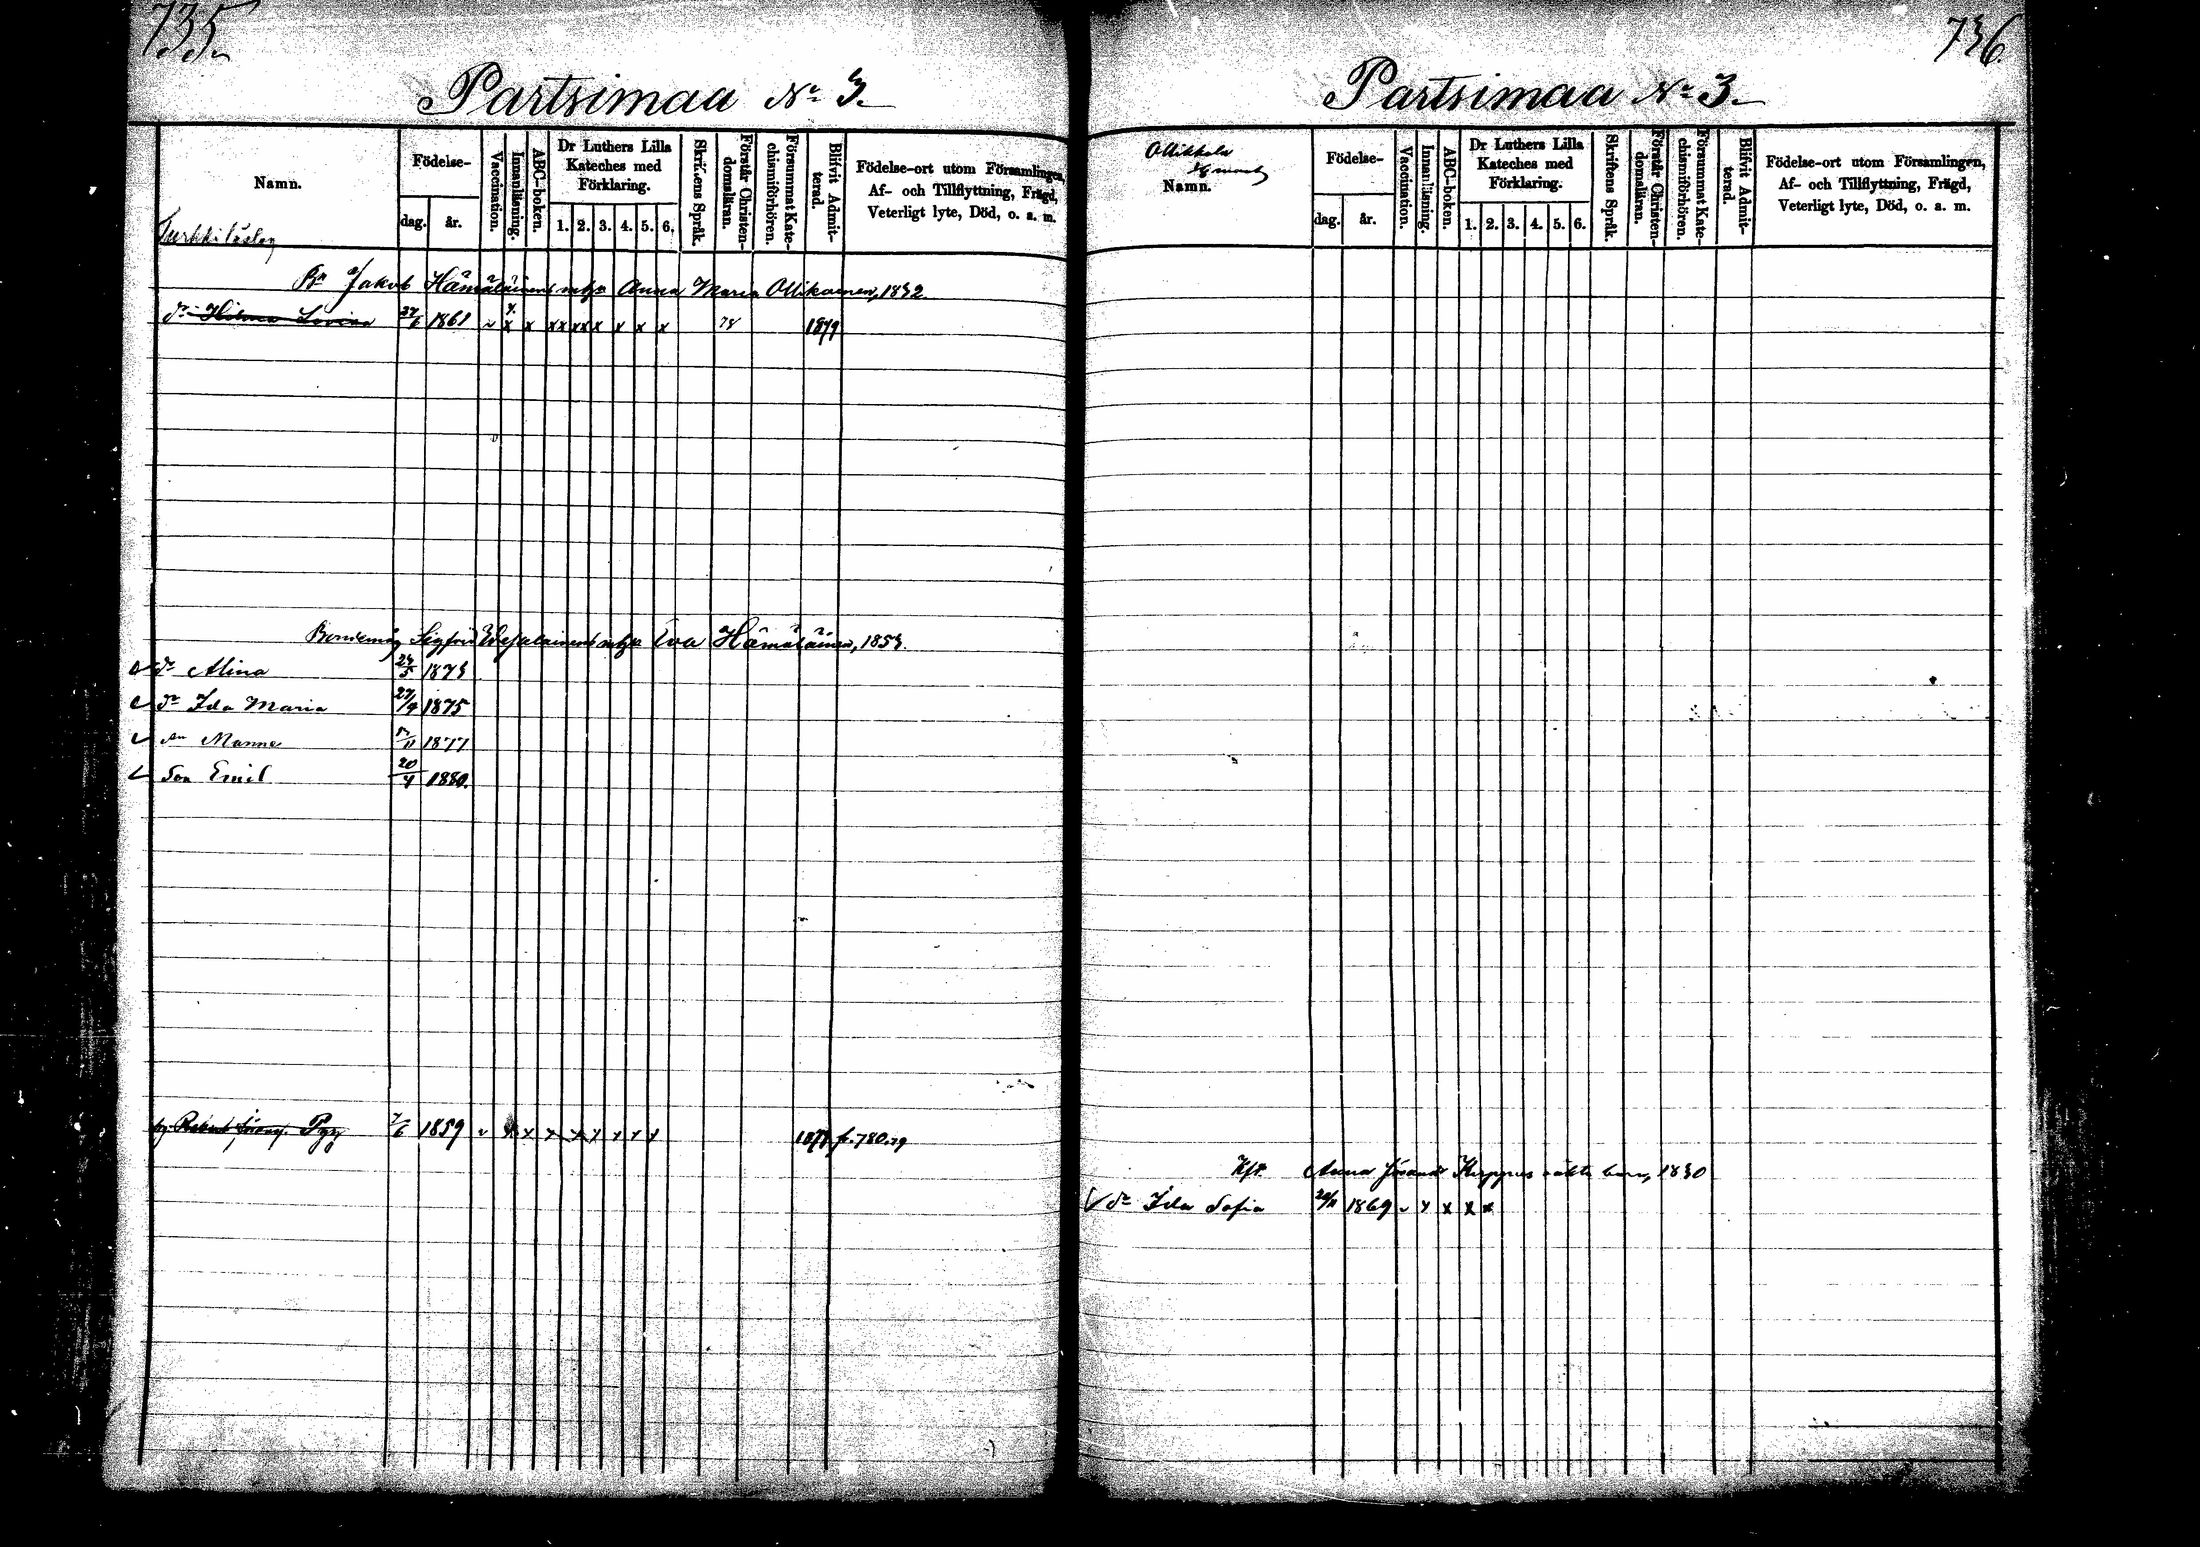 735.
Partsimaa No 3.
Namn.
Födelse-
dag.
år.
Vaccination.
Innanläsning.
ABC-boken.
Dr Luthers Lilla
Kateches med
Förklaring.
1. 2. 3. 4. 5. 6.
Skriftens Språk.
Förstår Christen-
domsläran.
Försummat Kate-
chismiförhören.
Blifvit Admit-
terad.
Födelse-ort utom Församlingen,
Af- och Tillflyttning, Frägd,
Veterligt lyte, Död, o. a. m.
Jakob Hämäläinens Anna Maria Ollikainen, 1832.
dr Hilma Lovisa 1861 x x xx xx x x x x 78 1879
Sigfrid Eva Hämäläinen, 1853.
dr Alina 24/5 1873
dr Ida Maria 27/9 1875
Manne 1877
Son Emil 20/4 1880.
Pyy 7/6 1859 x x x x x x x x fr. 780.79
736.
Partsimaa No 3.
Ollikkala
Namn.
Födelse-
dag.
år.
Vaccination.
Innanläsning.
ABC-boken.
Dr Luthers Lilla
Kateches med
Förklaring.
1. 2. 3. 4. 5. 6.
Skriftens Språk.
Förstår Christen-
domsläran.
Försummat Kate-
chismiförhören.
Blifvit Admit-
terad.
Födelse-ort utom Församlingen,
Af- och Tillflyttning, Frägd,
Veterligt lyte, Död, o. a. m.
Anna barn, 1830
dr Ida Sofia 1869 x x x x